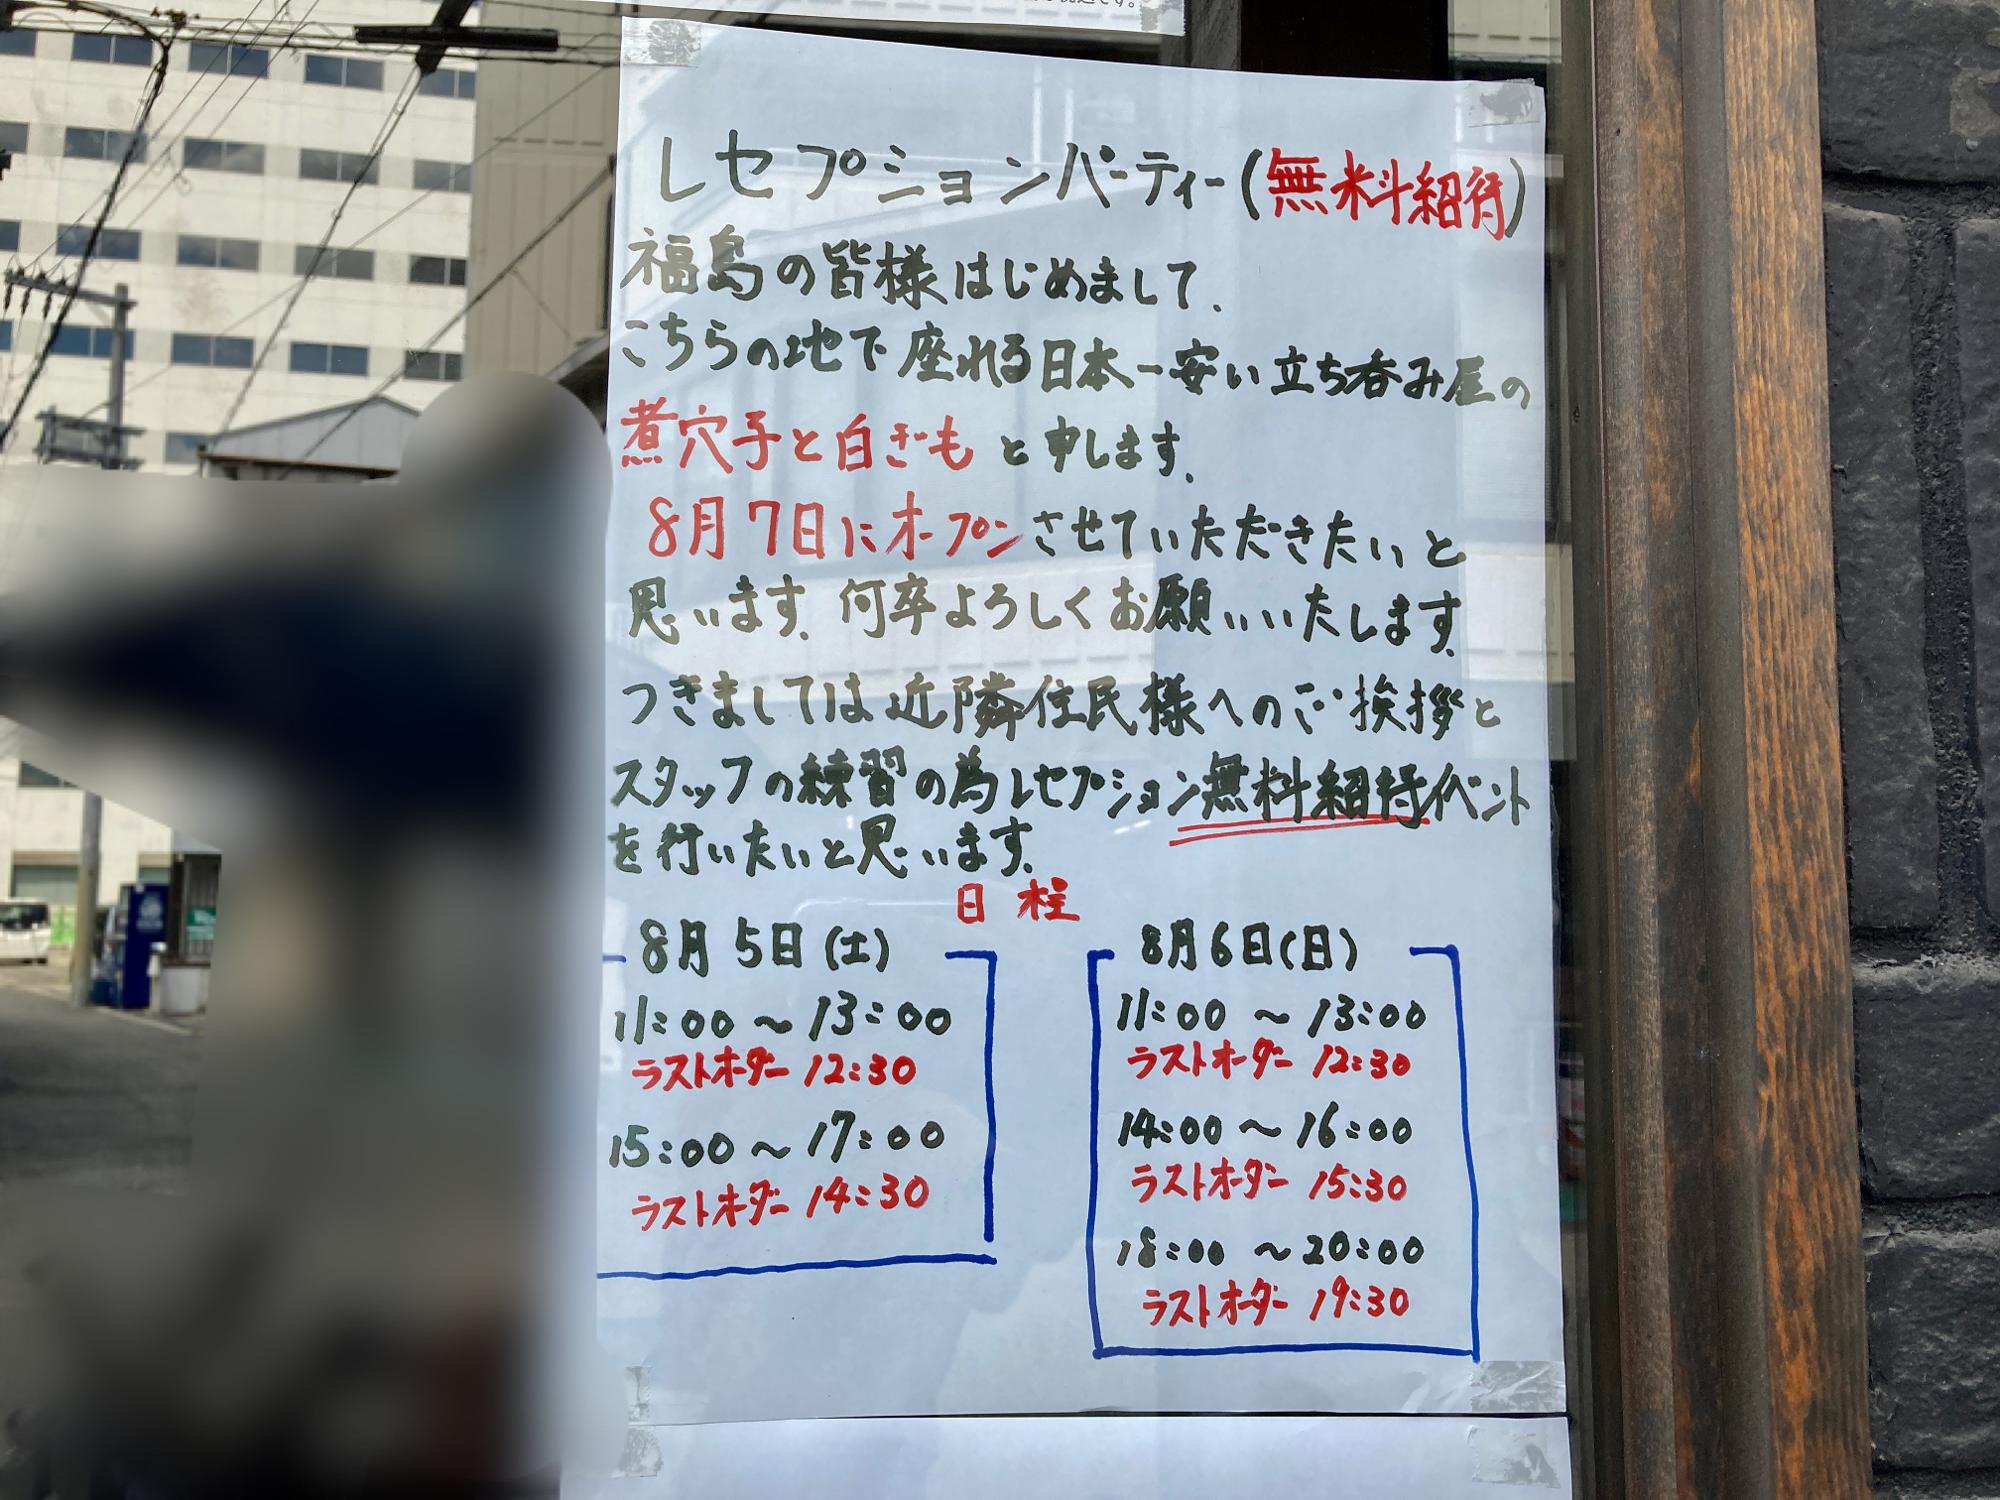 レセプションパーティー(無料紹待)
福島の皆様はじめまして.
こちらの地下座れる日本一安い立ち呑み屋の
煮穴子と白ぎもと申します.
8月7日にオープンさせていただきたいと
思います.何卒よろしくお願いいたします.
つきましては近隣住民様へのご挨拶と
スタッフの練習の為レセプション無料紹待イベント
を行いたいと思います.
日程
8月5日(土)
11:00～13:00
ラストオーダー 12:30
15:00～17:00
ラストオーダー 14:30
8月6日(日)
11:00～13:00
ラストオーダー 12:30
14:00～16:00
ラストオーダー 15:30
18:00～20:00
ラストオーダー 19:30